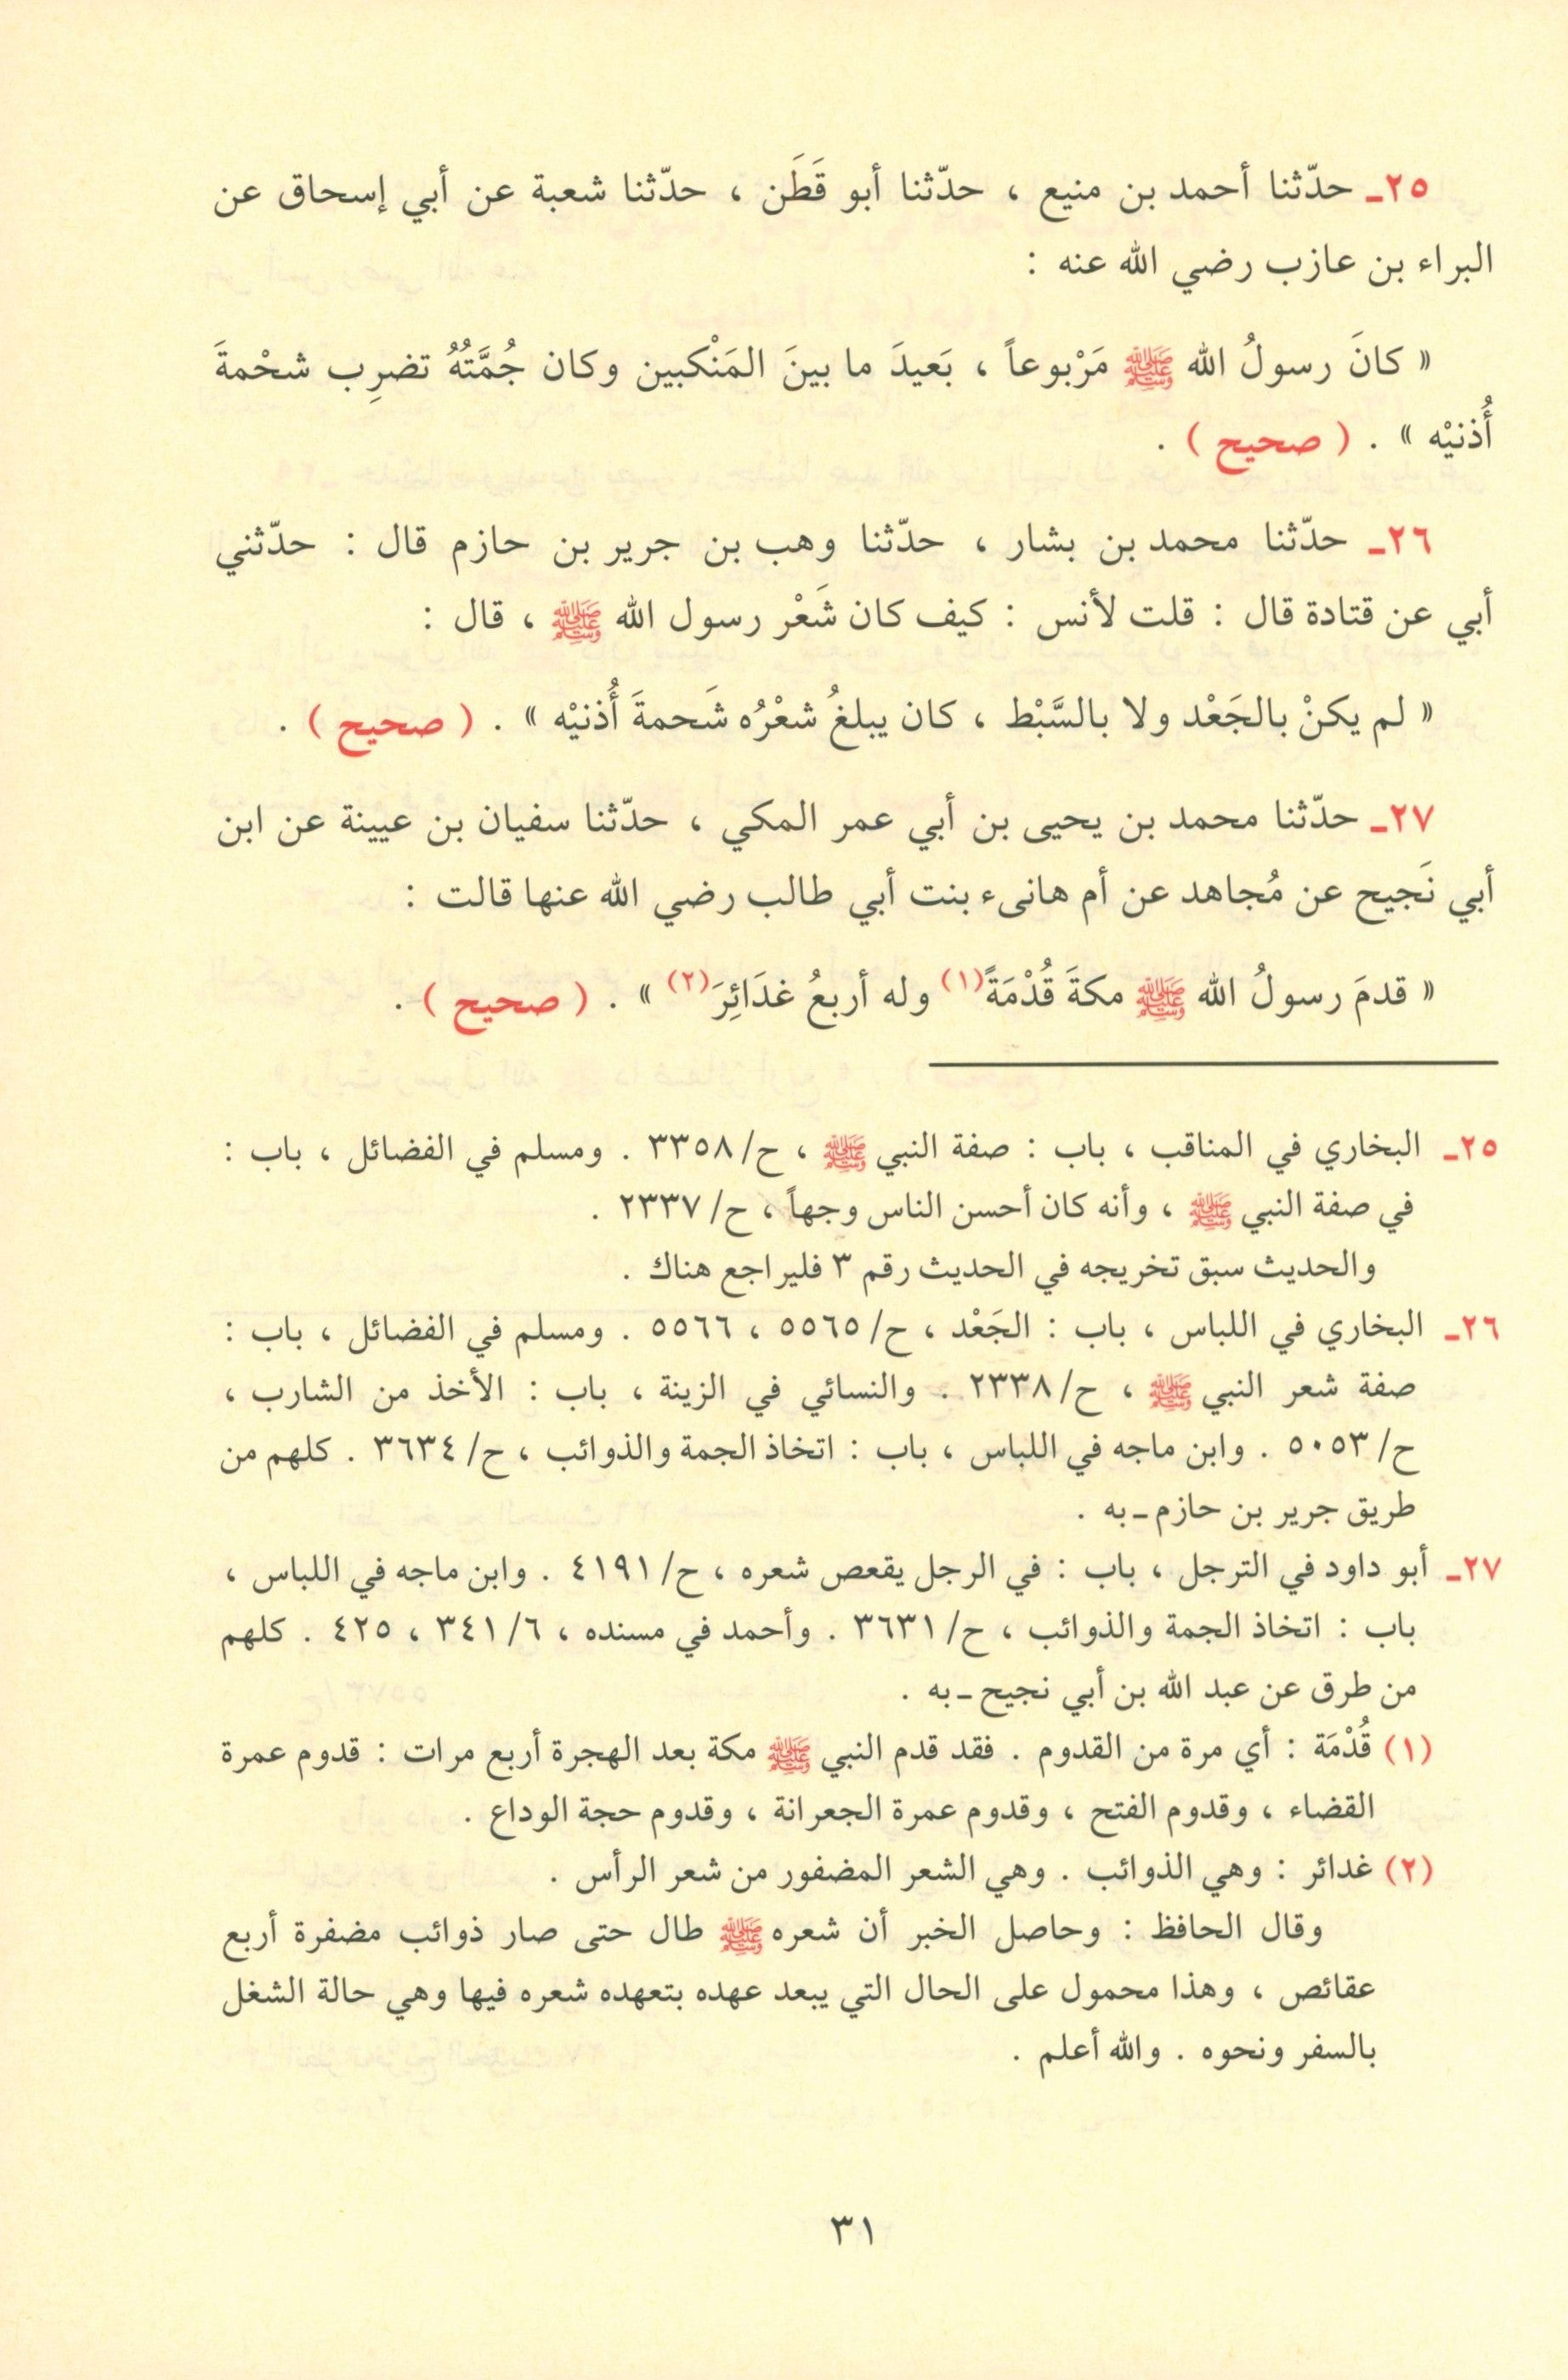 ٢٥ـ حدّثنا أحمد بن منيع ، حدّثنا أبو قَطَن ، حدّثنا شعبة عن أبي إسحاق عن
البراء بن عازب رضي الله عنه :
« كانَ رسولُ الله ﷺ مَرْبوعاً ، بَعيدَ ما بينَ المَنْكبين وكان جُمَّتُهُ تضرِب شحْمةَ
أُذنيْه » . ( صحيح ) .
٢٦ـ حدّثنا محمد بن بشار ، حدّثنا وهب بن جرير بن حازم قال : حدّثني
أبي عن قتادة قال : قلت لأنس : كيف كان شَعْر رسول الله ﷺ ، قال :
« لم يكنْ بالجَعْد ولا بالسَّبْط ، كان يبلغُ شعْرُه شَحمةَ أُذنيْه » . ( صحيح ) .
٢٧ـ حدّثنا محمد بن يحيى بن أبي عمر المكي ، حدّثنا سفيان بن عيينة عن ابن
أبي نَجيح عن مُجاهد عن أم هانىء بنت أبي طالب رضي الله عنها قالت :
« قدمَ رسولُ الله ﷺ مكةَ قُدْمَةً(١) وله أربعُ غدَائِرَ(٢) » . ( صحيح ) .
٢٥ـ البخاري في المناقب ، باب : صفة النبي ﷺ ، ح/ ٣٣٥٨ . ومسلم في الفضائل ، باب :
في صفة النبي ﷺ ، وأنه كان أحسن الناس وجهاً ، ح/ ٢٣٣٧ .
والحديث سبق تخريجه في الحديث رقم ٣ فليراجع هناك .
٢٦ـ البخاري في اللباس ، باب : الجَعْد ، ح/ ٥٥٦٥ ، ٥٥٦٦ . ومسلم في الفضائل ، باب :
صفة شعر النبي ﷺ ، ح/ ٢٣٣٨ . والنسائي في الزينة ، باب : الأخذ من الشارب ،
ح/ ٥٠٥٣ . وابن ماجه في اللباس ، باب : اتخاذ الجمة والذوائب ، ح/ ٣٦٣٤ . كلهم من
طريق جرير بن حازم ـ به .
٢٧ـ أبو داود في الترجل ، باب : في الرجل يقعص شعره ، ح/ ٤١٩١ . وابن ماجه في اللباس ،
باب : اتخاذ الجمة والذوائب ، ح/ ٣٦٣١ . وأحمد في مسنده ، ٦/ ٣٤١ ، ٤٢٥ . كلهم
من طرق عن عبد الله بن أبي نجيح ـ به .
(١) قُدْمَة : أي مرة من القدوم . فقد قدم النبي ﷺ مكة بعد الهجرة أربع مرات : قدوم عمرة
القضاء ، وقدوم الفتح ، وقدوم عمرة الجعرانة ، وقدوم حجة الوداع .
(٢) غدائر : وهي الذوائب . وهي الشعر المضفور من شعر الرأس .
وقال الحافظ : وحاصل الخبر أن شعره ﷺ طال حتى صار ذوائب مضفرة أربع
عقائص ، وهذا محمول على الحال التي يبعد عهده بتعهده شعره فيها وهي حالة الشغل
بالسفر ونحوه . والله أعلم .
٣١